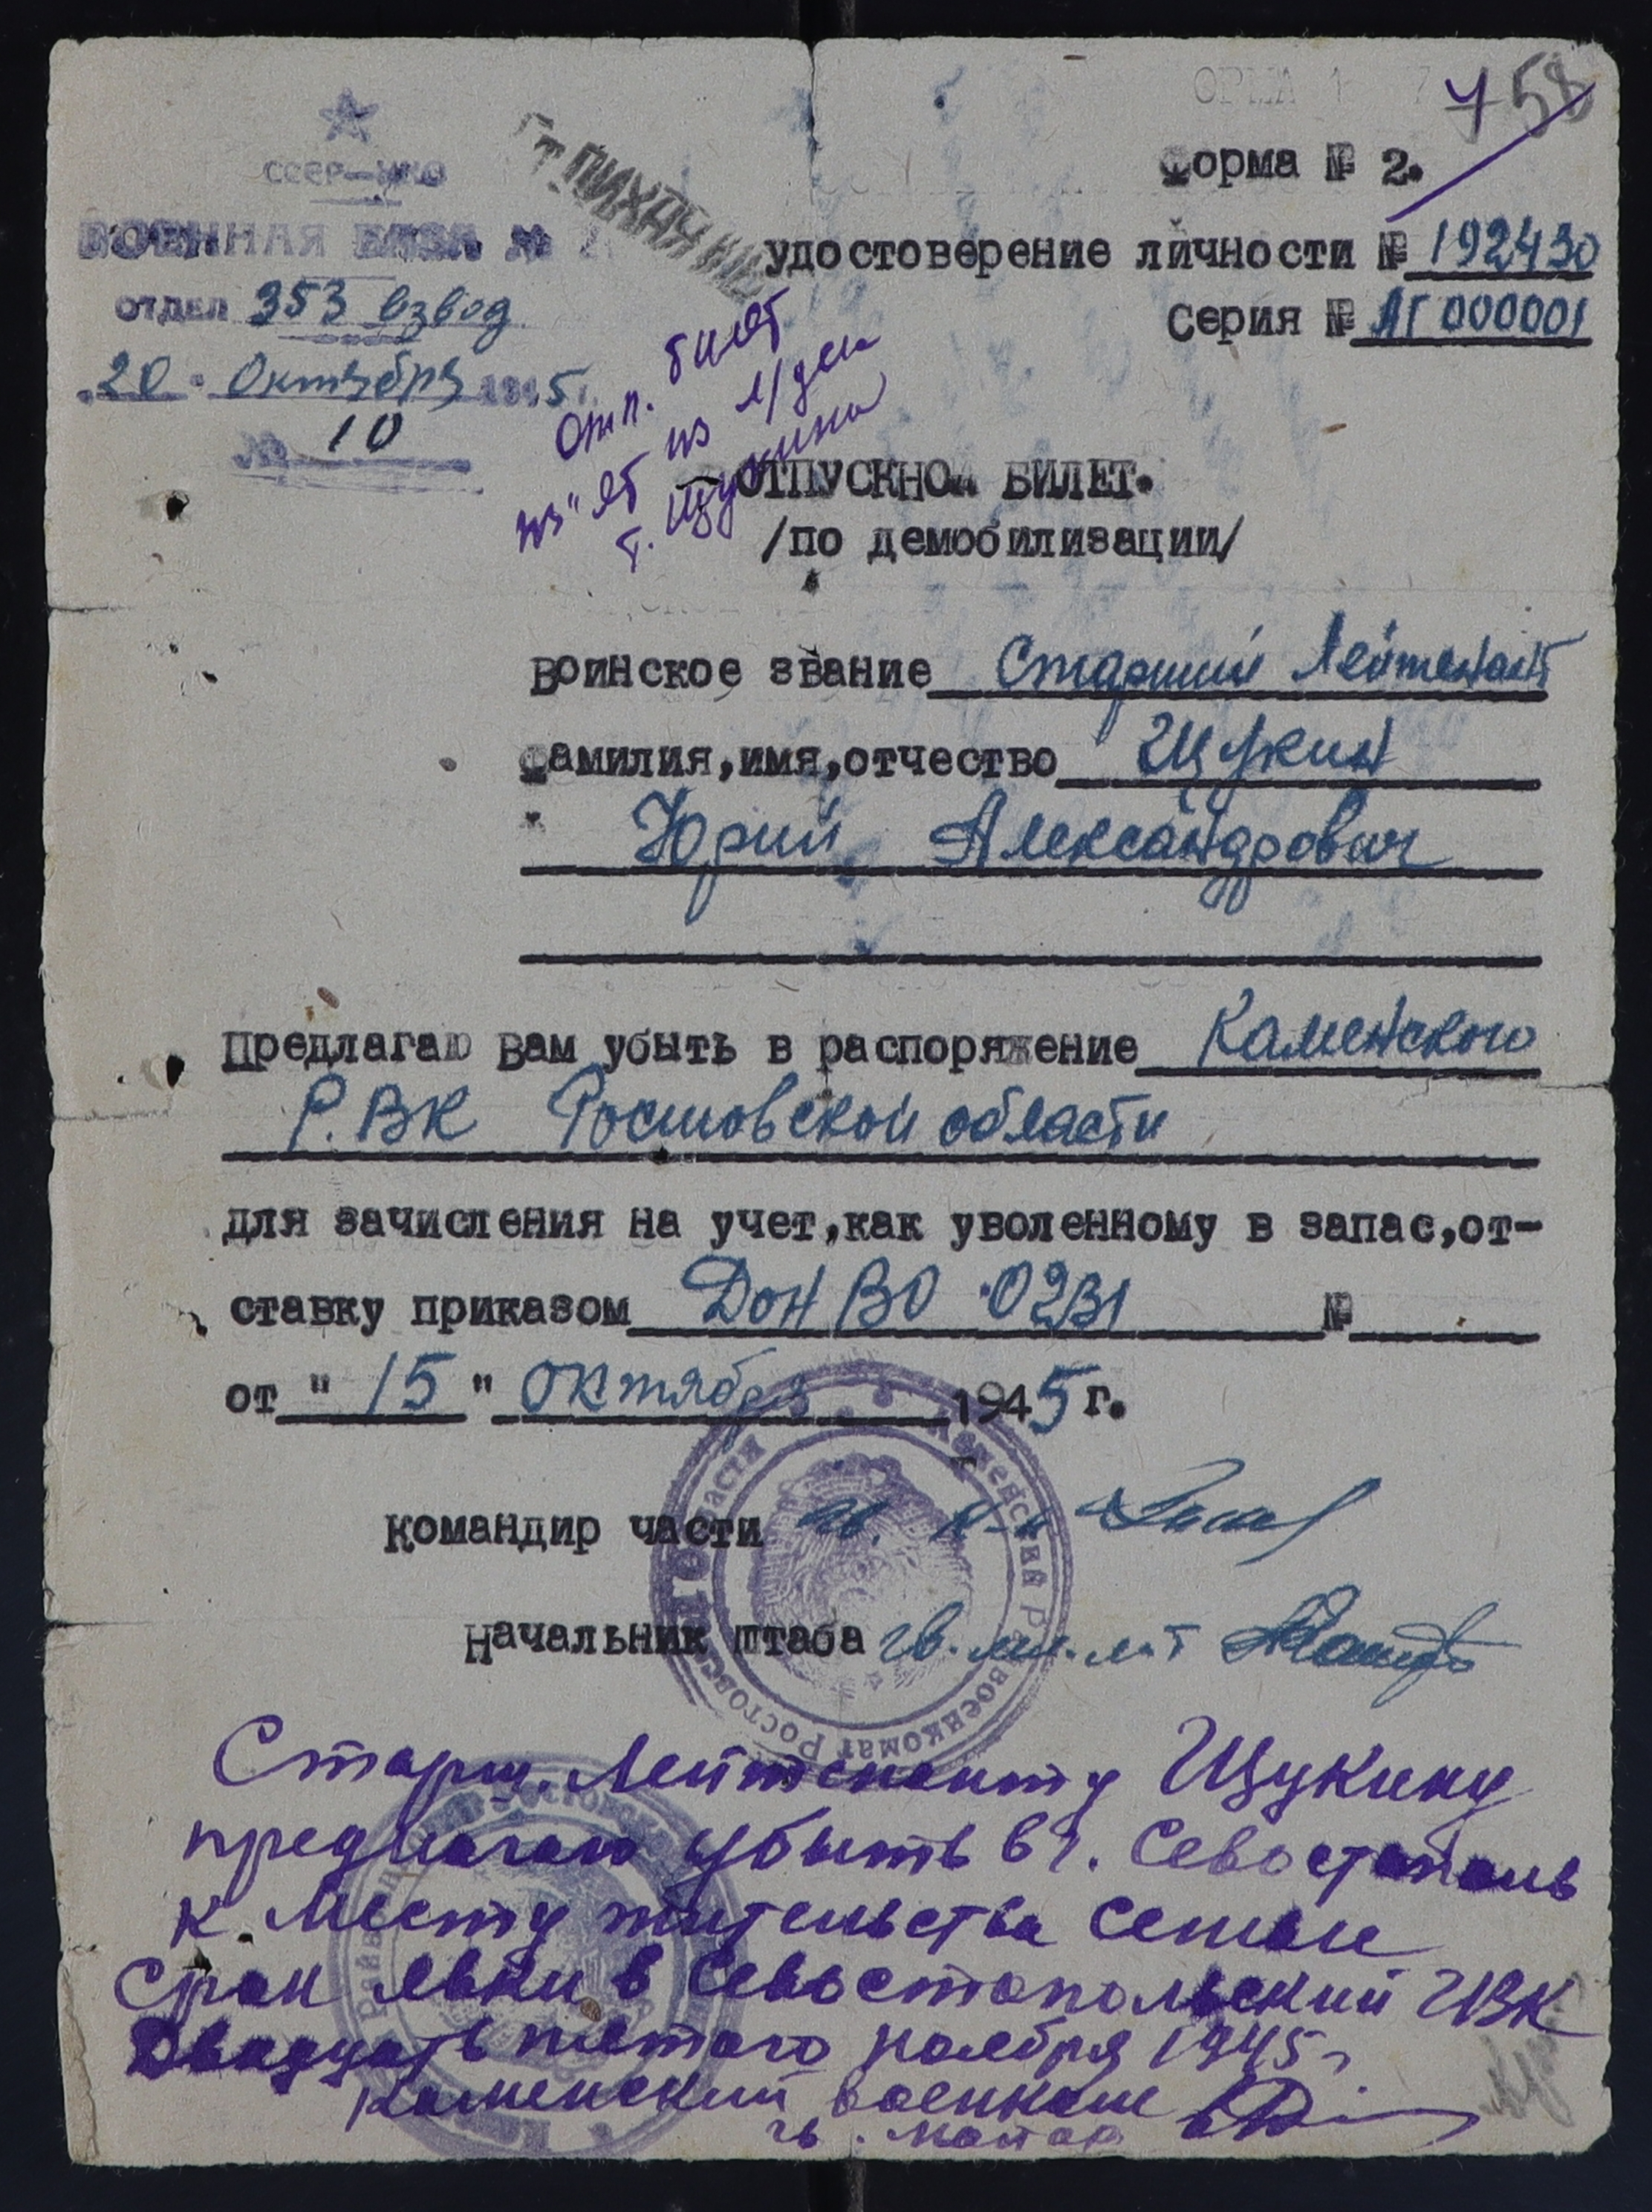 758
Форма № 2.
СССР—НКО
ВОЕННАЯ БАЗА №
отдел 353 взвод
"20" Октября 1945 г.
№ 10
т. ПИХАЧ
удостоверение личности № 192430
Серия № АГ 000001
Отп. билет
из"ят из л/дела
т. Щукина
ОТПУСКНОЙ БИЛЕТ.
/по демобилизации/
воинское звание Старший Лейтенант
фамилия,имя,отчество Щукин
Юрий Александрович
Предлагаю Вам убыть в распоряжение Каменского
Р.ВК Ростовской области
для зачисления на учет,как уволенному в запас,от-
ставку приказом ДонВО 0231 №
от "15" октября 1945 г.
Командир части
Начальник штаба гв. мл. л-т
Каменский Райвоенкомат Ростовской области
Старш. Лейтенанту Щукину
предлагаю убыть в г. Севостополь
к месту жительства семьи
Срок явки в Севостопольский ГВК
Двадцать пятого ноября 1945 г.
Каменский военком
гв. майор